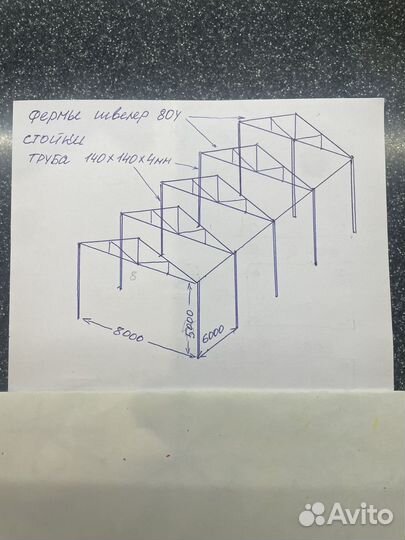 ФЕРМЫ ШВЕЛЕР 80У
СТОЙКИ
ТРУБА 140×140×4мм
8
8000
5000
6000
Avito